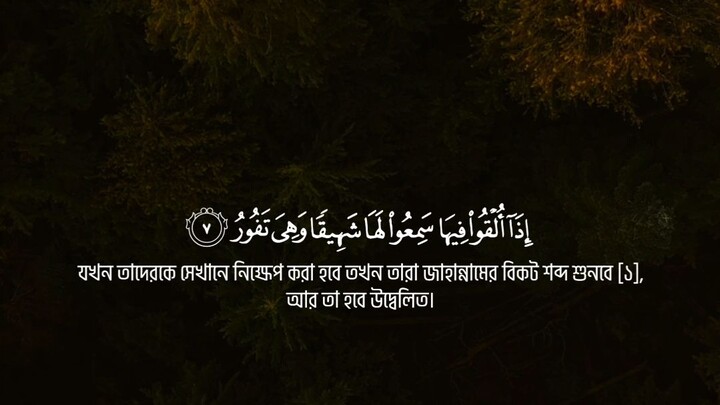 إِذَآ أُلْقُوا۟ فِيهَا سَمِعُوا۟ لَهَا شَهِيقًا وَهِىَ تَفُورُ ٧
যখন তাদেরকে সেখানে নিক্ষেপ করা হবে তখন তারা জাহান্নামের বিকট শব্দ শুনবে [১],
আর তা হবে উদ্বেলিত।